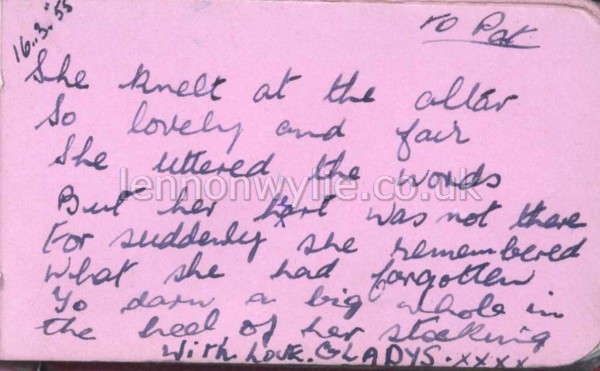 16.3.55
To Pat
She knelt at the altar
So lovely and fair
She uttered the words
lennonwylie.co.uk
But her hart was not there
For suddenly she remembered
What she had forgotten
To darn a big whole in
the heel of her stocking
With Love. GLADYS. xxxx